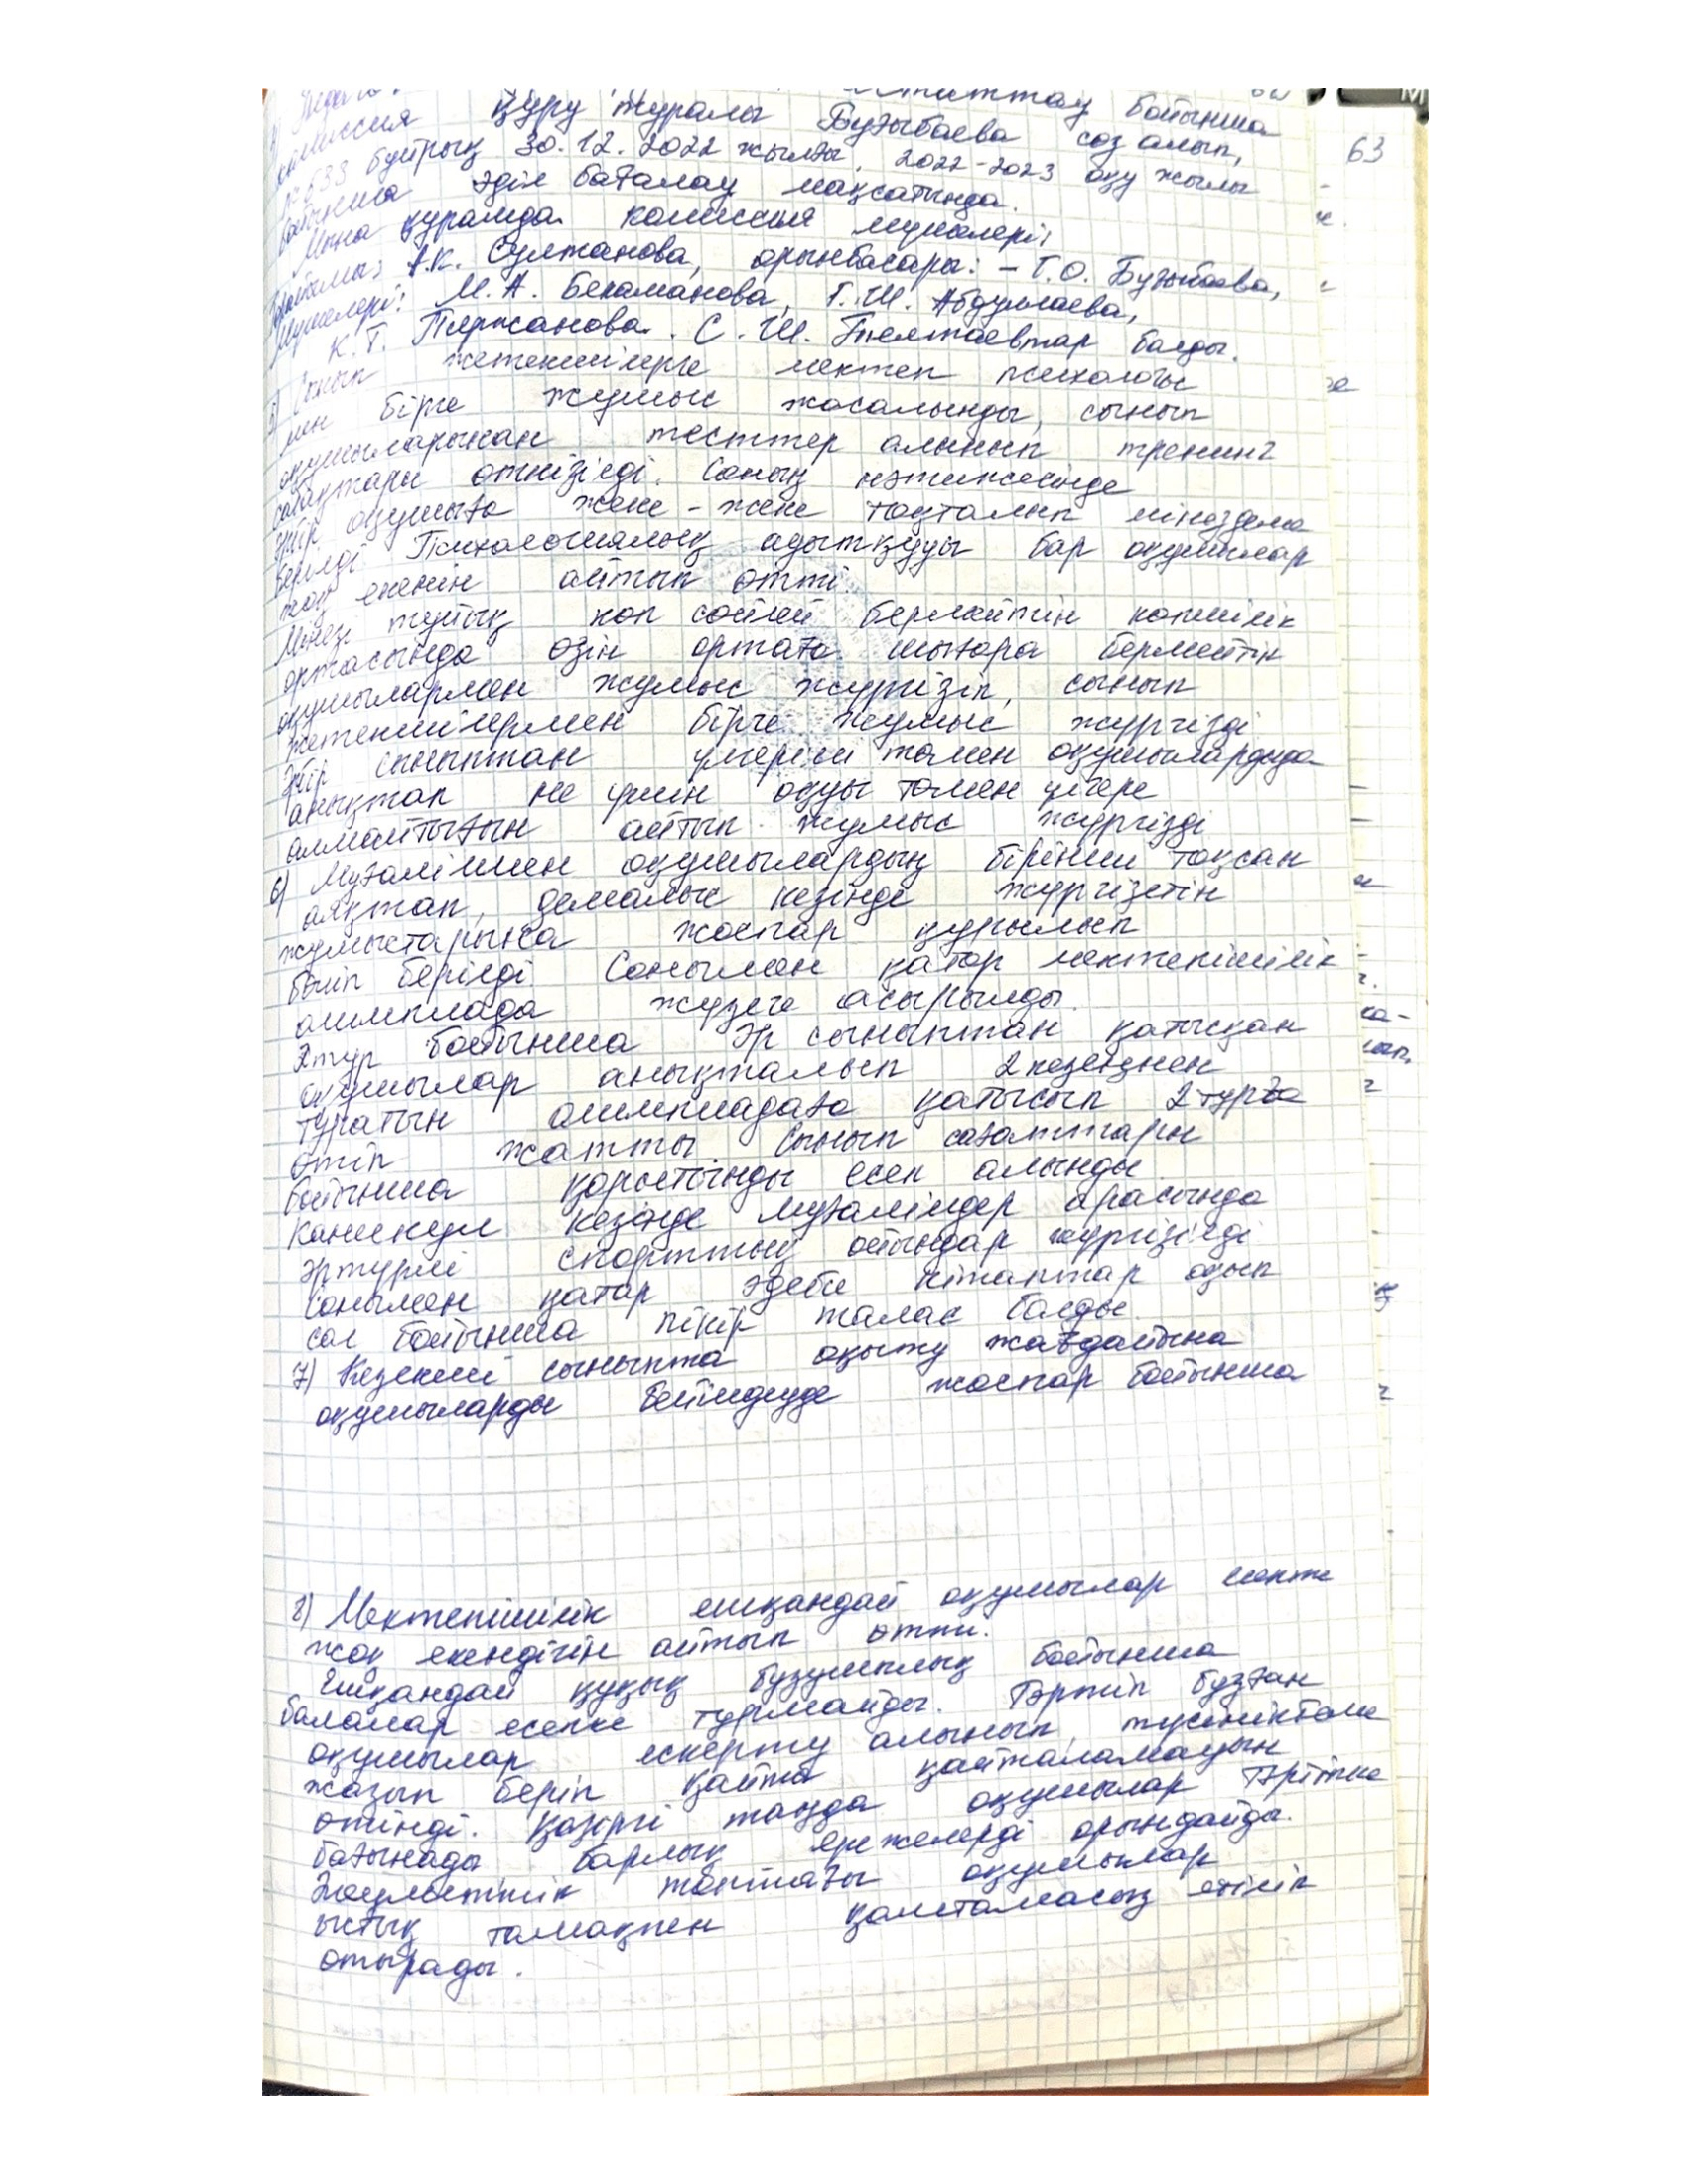 63
комиссия құру туралы Бузыбаева сөз алып,
№ 633 бұйрық 30.12.2022 жылғы, 2022-2023 оқу жылы
бойынша әділ бағалау мақсатында.
Мына құрамда комиссия мүшелері:
А.К. Султанова, орынбасары: - Г.О. Бузыбаева,
Мүшелері: М.А. Бекаманова, Г.Ш. Абдуллаева,
К.Т. Пиржанова. С.Ш. болды.
5) Сынып жетекшілерге мектеп психологы
мен бірге жұмыс жасалынды, сынып
оқушыларынан тесттер алынып тренинг
сабақтары өткізілді. Соның нәтижесінде
әбір оқушыға жеке-жеке тоқталып мінездеме
берілді. Психологиялық ауытқуы бар оқушылар
жоқ екенін айтып өтті.
Мінезі тұйық көп сөйлей бермейтін көпшілік
ортасында өзін ортаға шығара бермейтін
оқушылармен жұмыс жүргізіп, сынып
жетекшілермен бірге жұмыс жүргізді
әбір сыныптан үлгерімі төмен оқушылардыда
анықтап не үшін оқуы төмен үлгере
алмайтығын айтып жұмыс жүргізді
6) Мұғаліммен оқушылардың бірінші тоқсан
аяқтап, демалыс кезінде жүргізетін
жұмыстарына жоспар құрылып
бөліп берілді. Сонымен қатар мектепішілік
олимпиада жүзеге асырылды.
2тур бойынша Әр сыныптан қатысқан
оқушылар анықталып 2 кезеңнен
тұратын олимпиадаға қатысып 2 турға
өтіп жатты. Сынып сағаттары
бойынша қорытынды есеп алынды
Каникул кезінде мұғалімдер арасында
әртүрлі спорттық ойындар жүргізілді
Сонымен қатар әдеби кітаптар оқып
сол бойынша пікір талас болды.
7) Кезекші сыныпта оқыту жағдайына
оқушыларды бейімдеуде жоспар бойынша
8) Мектепішілік ешқандай оқушылар
жоқ екендігін айтып өтті.
Ешқандай құқық бұзушылық бойынша
балалар есепке тұрмайды. Тәртіп бұзған
оқушылар ескерту алынып, түсініктеме
жазып беріп қайта қайталамауын
өтінді. Қазіргі таңда оқушылар тәртіпке
бағынады барлық ережелерді орындайды.
Әлеуметтік топтағы оқушылар
ыстық тамақпен қамтамасыз етіліп
отырады.